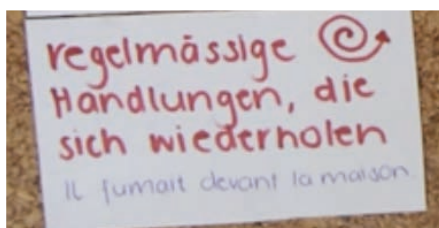 regelmässige
Handlungen, die
sich wiederholen
Il fumait devant la maison